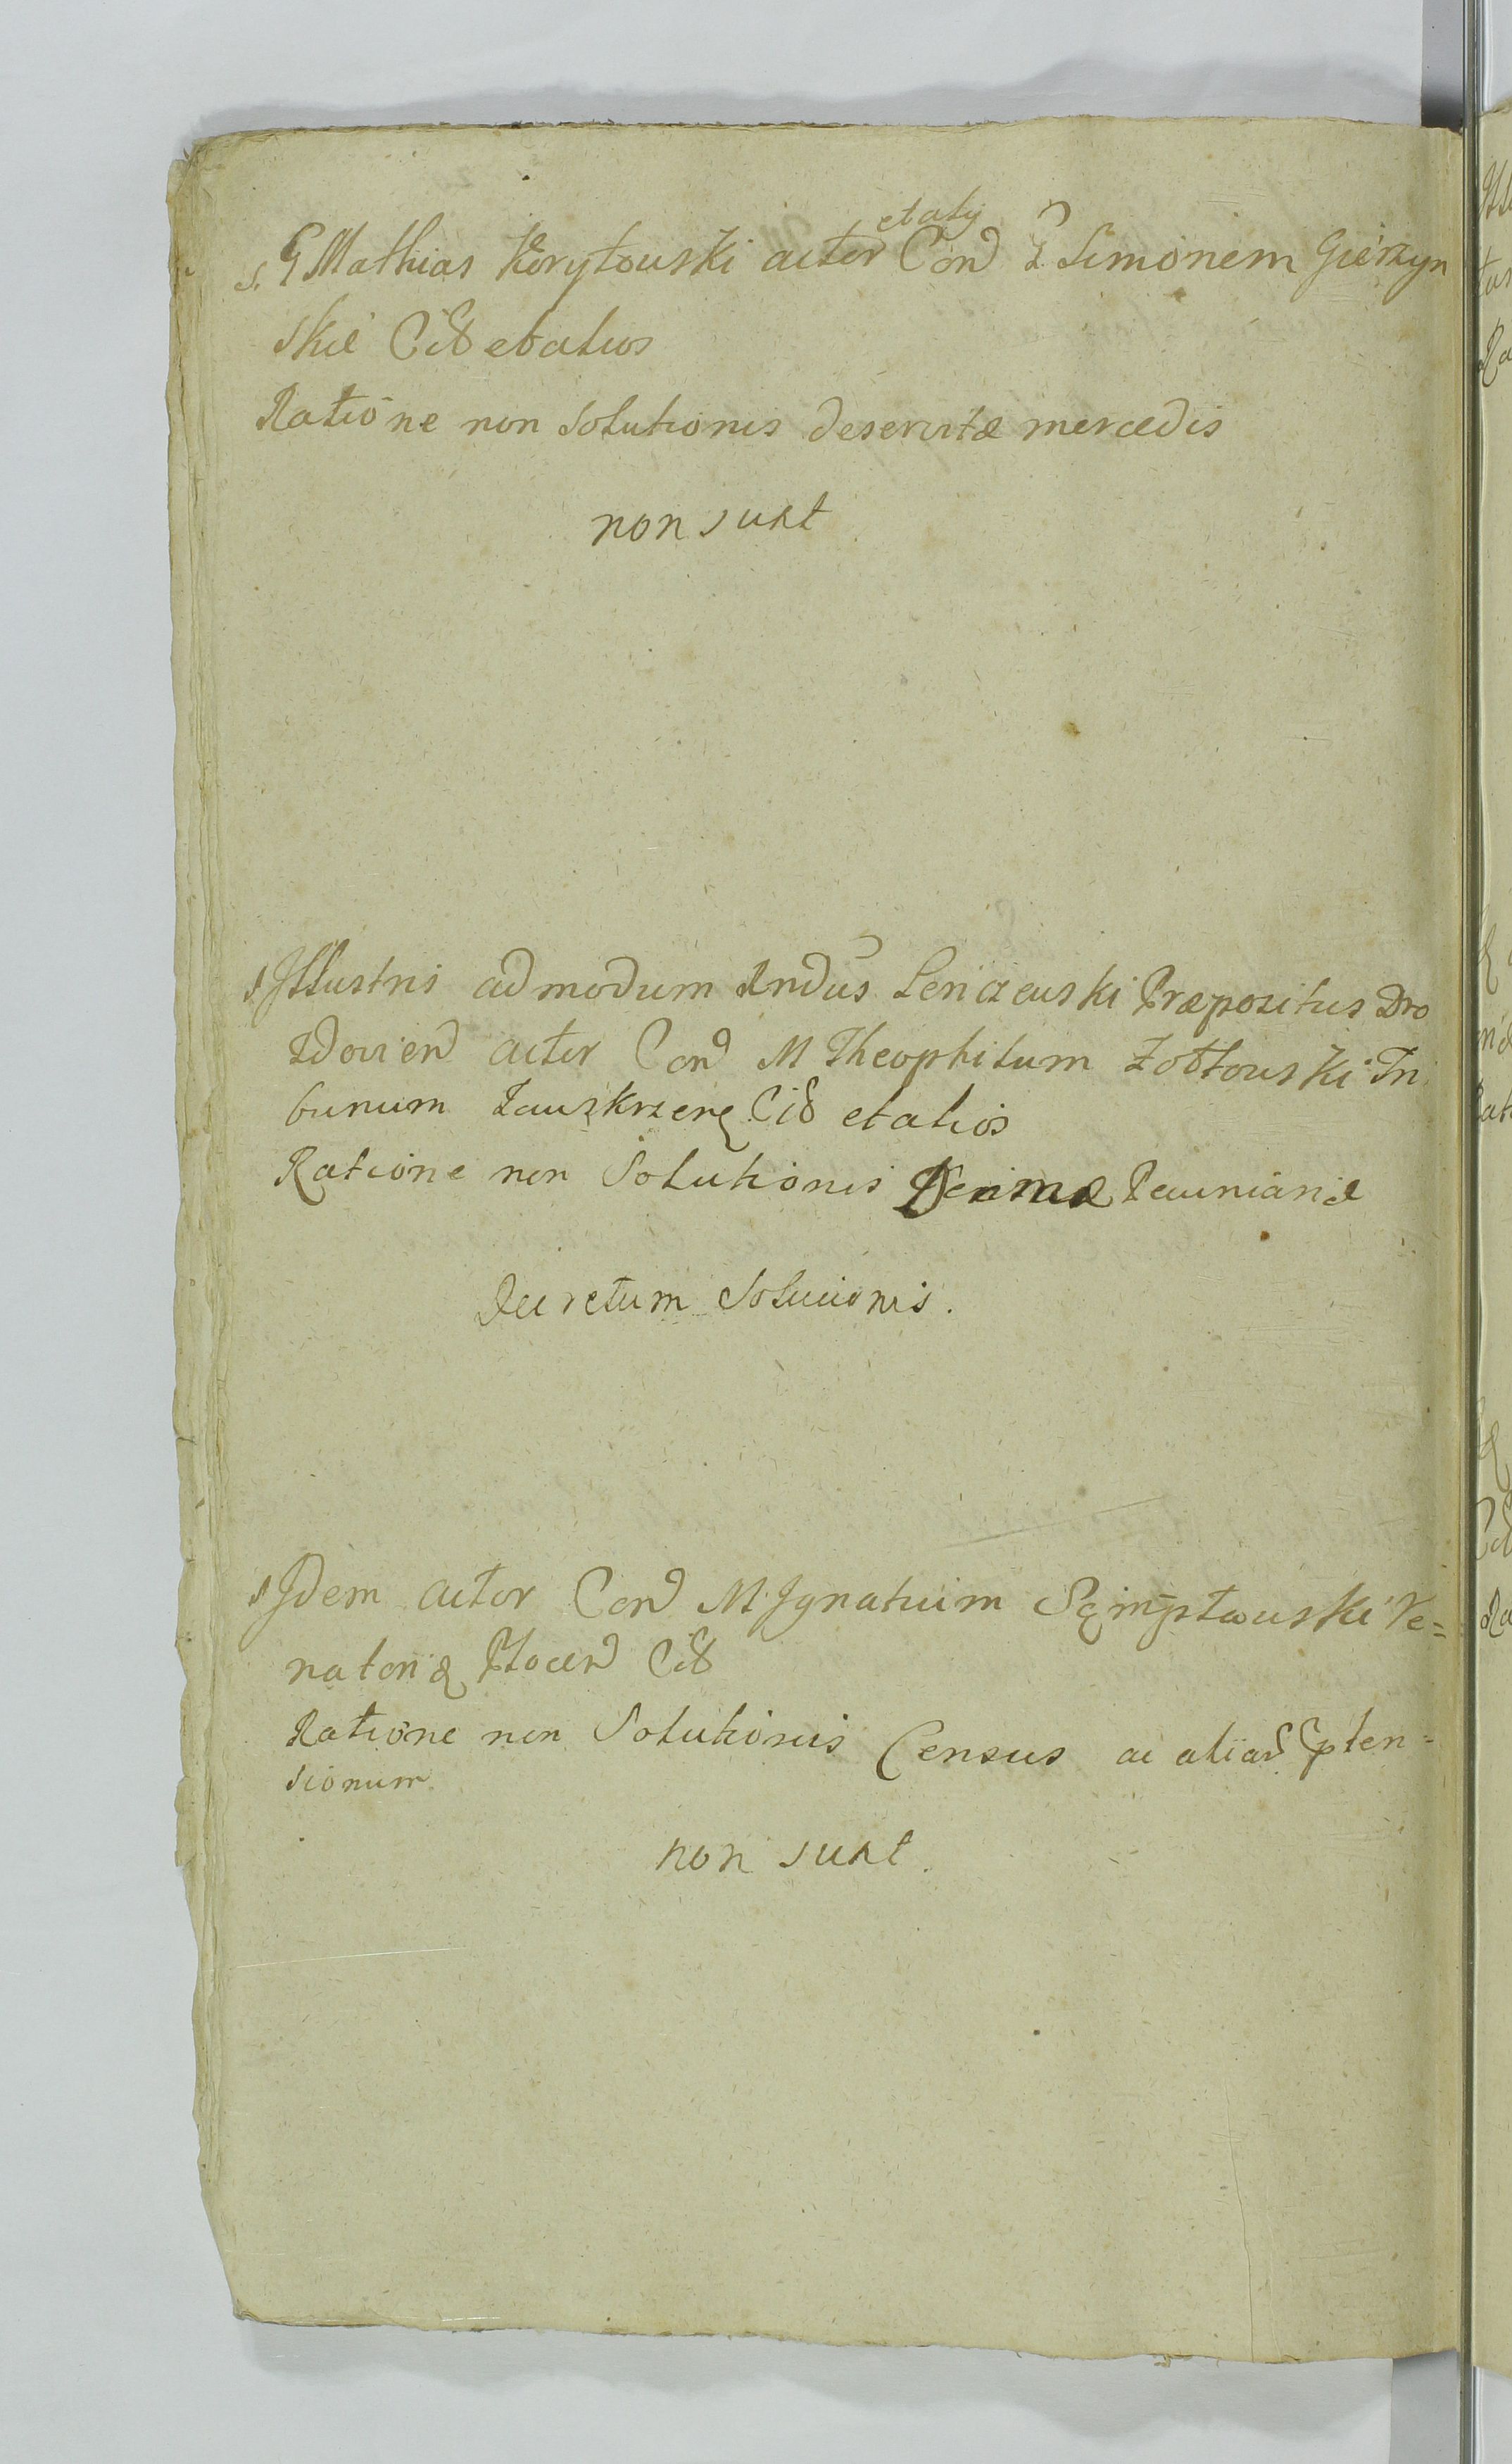 s. G Mathias Korytowski actor et alij Con G Simonem Gierzyn
ski Cit et alios
Ratione non Solutionis deservitæ mercedis
non sunt
s Jllustris admodum Rndus Lenczewski Præpositus Dro
zdovien actor Con M Theophilum Żółtowski Tri
bunum Zawskrzen Cit et alios
Ratione non Solutionis Decimæ Pecuniariæ
Decretum Solucionis.
s Jdem actor Con M Jgnatium Sęmpławski Ve=
natorem Plocen Cit
Ratione non Solutionis Census ac aliar ꝑten=
sionum
non sunt.